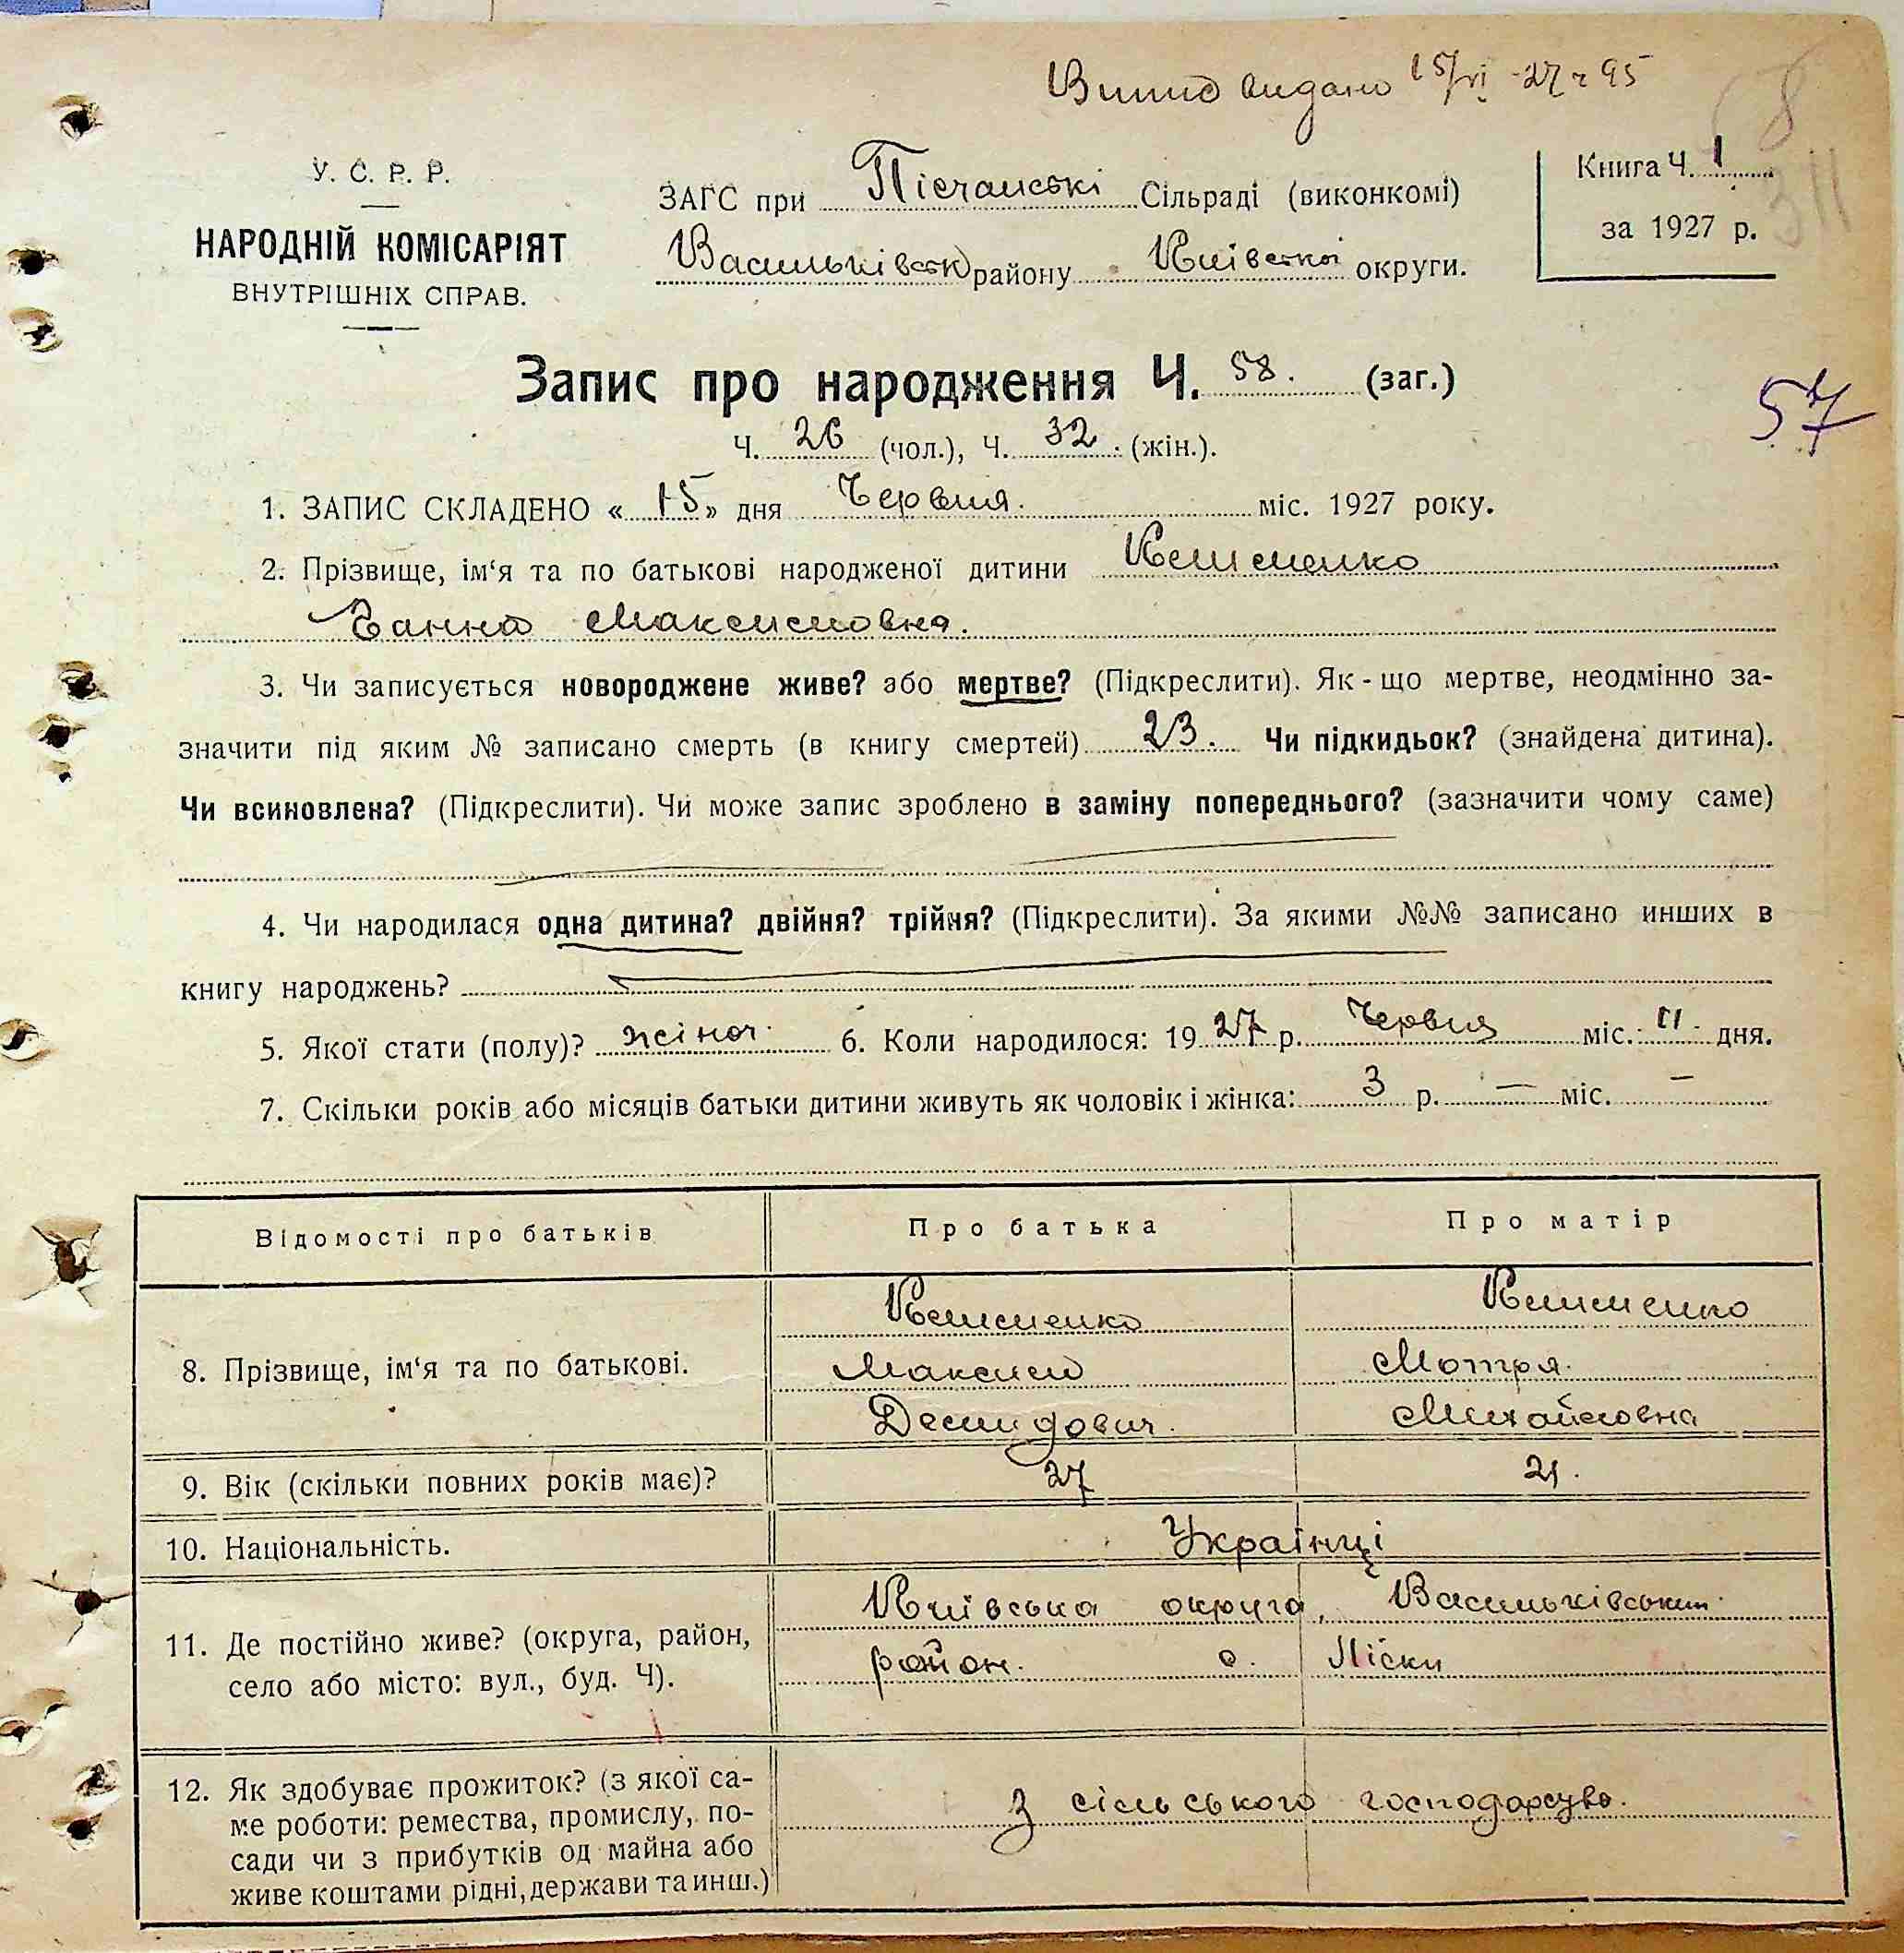 видано 15/VI -27 ч 95
8
311
У. С. Р. Р.
НАРОДНІЙ КОМІСАРІЯТ
ВНУТРІШНІХ СПРАВ.
ЗАГС при Пісчанські Сільраді (виконкомі)
Васильківськ району Київської округи.
Книга Ч. 1
за 1927 р.
Запис про народження Ч. 58. (заг.)
57
Ч. 26 (чол.), Ч. 32. (жін.).
1. ЗАПИС СКЛАДЕНО « 15 » дня Червня. міс. 1927 року.
2. Прізвище, ім‘я та по батькові народженої дитини
Ганна Максимовна.
3. Чи записується новороджене живе? або мертве? (Підкреслити). Як-що мертве, неодмінно за-
значити під яким № записано смерть (в книгу смертей) 23. Чи підкидьок? (знайдена дитина).
Чи всиновлена? (Підкреслити). Чи може запис зроблено в заміну попереднього? (зазначити чому саме)
4. Чи народилася одна дитина? двійня? трійня? (Підкреслити). За якими №№ записано инших в
книгу народжень?
5. Якої стати (полу)? жіноч. 6. Коли народилося: 19 27 р. Червня міс. 11. дня.
7. Скільки років або місяців батьки дитини живуть як чоловік і жінка: 3 р. — міс. —
Відомості про батьків
Про батька
Про матір
8. Прізвище, ім‘я та по батькові.
Максим
Демидович.
Мотря.
Михайловна
9. Вік (скільки повних років має)?
27
21.
10. Національність.
Українці
11. Де постійно живе? (округа, район,
село або місто: вул., буд. Ч).
Київська округа, Васильківський
район. с. Піски
12. Як здобуває прожиток? (з якої са-
ме роботи: ремества, промислу, по-
сади чи з прибутків од майна або
живе коштами рідні, держави та инш.)
З сільського господарсува.